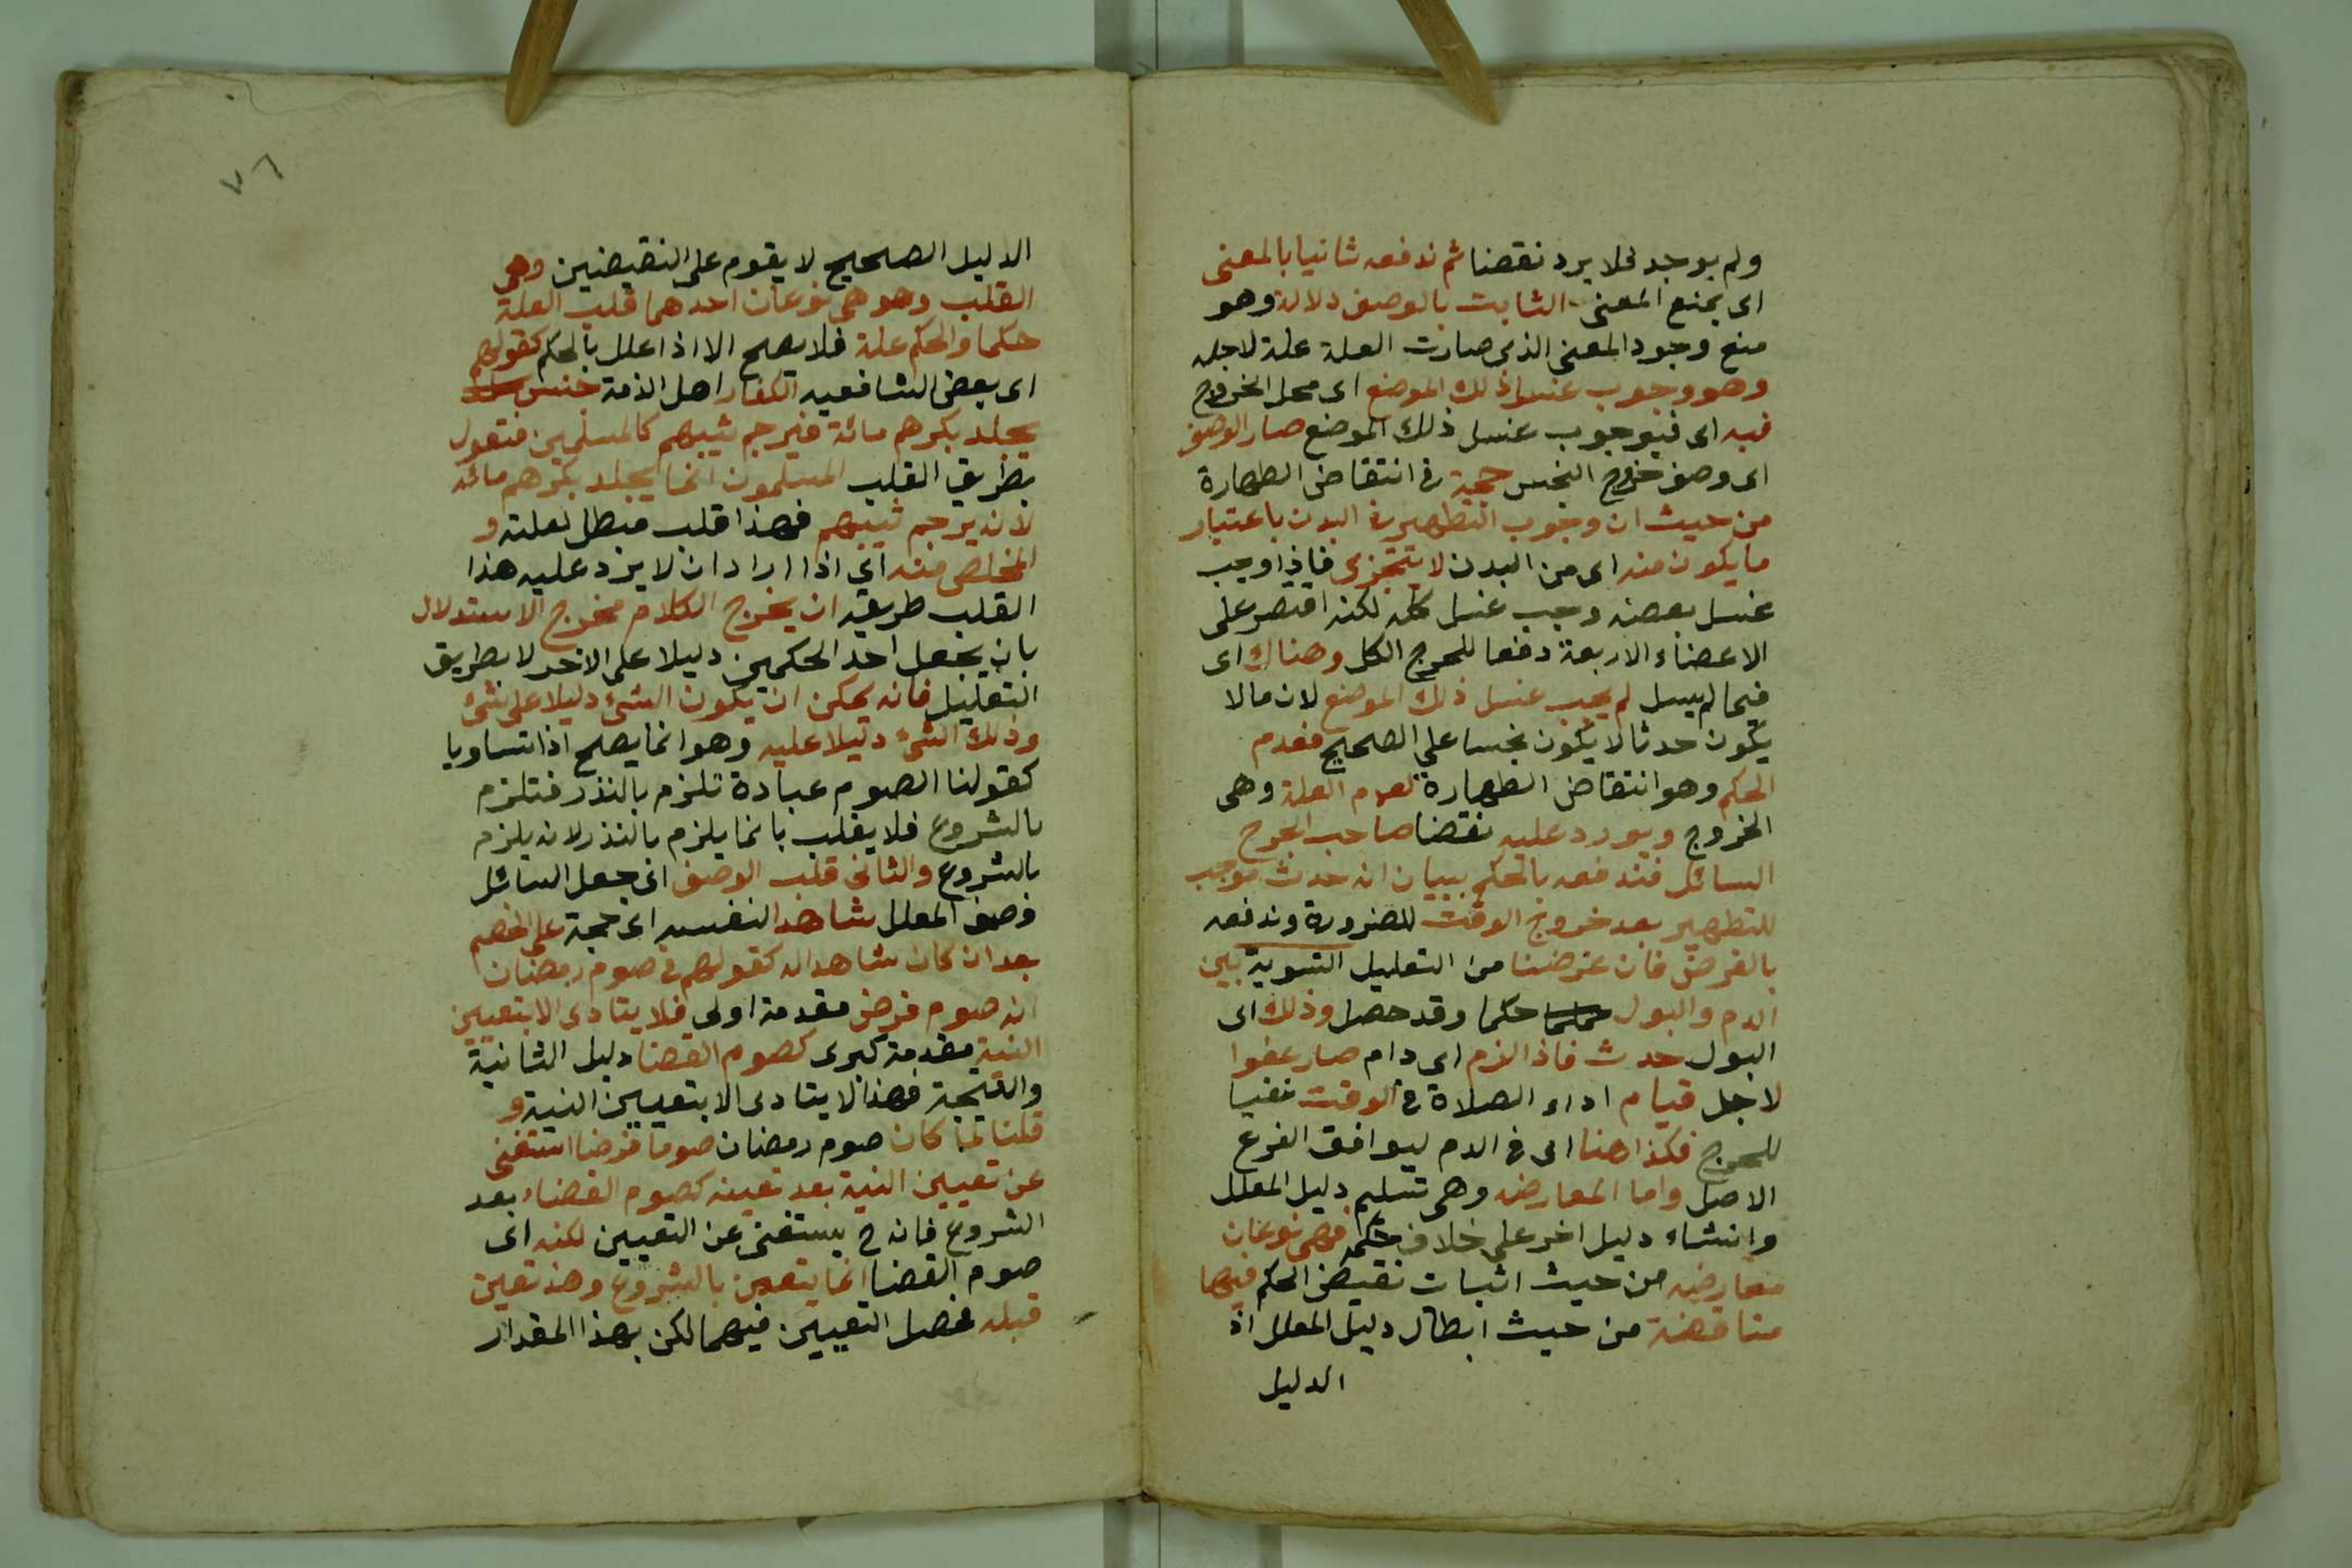 ولم يوجد فلا يرد نقضا ثم ندفعه ثانيا بالمعنى
اى بمنع المعنى الثابت بالوصف دلالة وهو
منع وجود المعنى الذى صارت العلة علة لاجله
وهو وجوب غسل ذلك الموضع اى محل الخروج
فيه اى فبوجوب غسل ذلك الموضع صار الوصف
اى وصف خروج النجس حجة فى انتقاض الطهارة
من حيث ان وجوب التطهير فى البدن باعتبار
ما يكون منه اى من البدن لا يتجزى فاذا وجب
غسل بعضه وجب غسل كله لكنه اقتصر على
الاعضاء الاربعة دفعا للحرج الكل وهناك اى
فيما لم يسل لم يجب غسل ذلك الموضع لان مالا
يكون حدثا لا يكون نجسا على الصحيح فعدم
الحكم وهو انتقاض الطهارة لعدم العلة وهى
الخروج ويورد عليه نقضا صاحب الجرح
السائل فندفعه بالحكم ببيان انه حدث موجب
للتطهير بعد خروج الوقت للضرورة وندفعه
بالغرض فان غرضنا من التعليل التسوية بين
الدم والبول حكما وقد حصل وذلك اى
البول حدث فاذا لزم اى دام صار عفوا
لاجل قيام اداء الصلاة فى الوقت نفيا
للحرج فكذا هنا اى فى الدم ليوافق الفرع
الاصل واما المعارضه وهى تسليم دليل المعلل
وانشاء دليل اخر على خلاف حكمه فهى نوعان
معارضه من حيث اثبات نقيض الحكم فيها
مناقضة من حيث ابطال دليل المعلل اذ
الدليل
٧٦
الدليل الصحيح لا يقوم على النقيضين وهى
القلب وهو هى نوعان احدهما قلب العلة
حكما والحكم علة فلا يصح الا اذا علل بالحكم كقولهم
اى بعض الشافعيه الكفار اهل الذمة جنس
يجلد بكرهم مائة فيرجم ثيبهم كالمسلمين فنقول
بطريق القلب المسلمون انما يجلد بكرهم مائه
لانه يرجم ثيبهم فهذا قلب مبطل لعلته و
المخلص منه اى اذا اراد ان لا يرد عليه هذا
القلب طريقه ان يخرج الكلام مخرج الاستدلال
بان يجعل احد الحكمين دليلا على الاخر لا بطريق
التعليل فانه يمكن ان يكون الشئ دليلا على شئ
وذلك الشئ دليلا عليه وهو انما يصح اذا تساويا
كقولنا الصوم عبادة تلزم بالنذر فتلزم
بالشروع فلا يقلب بانما يلزم بالنذر لانه يلزم
بالشروع والثانى قلب الوصف اى جعل السائل
وصف المعلل شاهدا لنفسه اى حجة على الخصم
بعد ان كان شاهدا له كقولهم فى صوم رمضان
انه صوم فرض مقدمة اولى فلا يتادى الا بتعيين
النية مقدمة كبرى كصوم القضا دليل الثانية
والنتيجة فهذا لا يتادى الا بتعيين النية و
قلنا لما كان صوم رمضان صوما فرضا استغنى
عن تعيين النية بعد تعينه كصوم القضاء بعد
الشروع فانه ح يستغنى عن التعيين لكنه اى
صوم القضا انما يتعين بالشروع وهذا تعين
قبله فحصل التعيين فيهما لكن بهذا المقدار